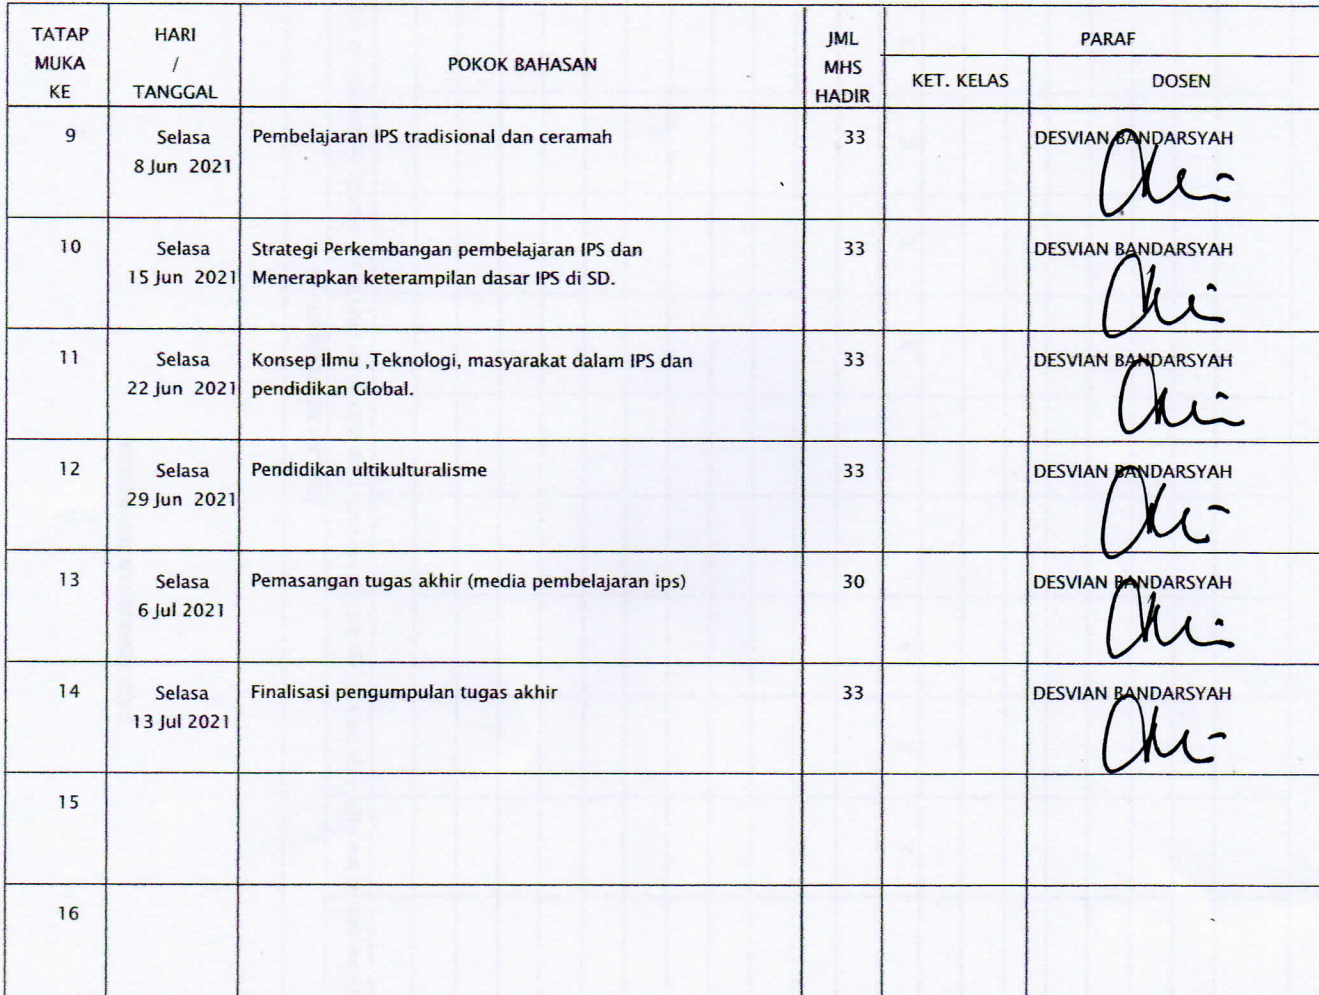 TATAP MUKA KE
HARI / TANGGAL
POKOK BAHASAN
JML MHS HADIR
PARAF
KET. KELAS
DOSEN
9
Selasa
8 Jun 2021
Pembelajaran IPS tradisional dan ceramah
33
DESVIAN BANDARSYAH
10
Selasa
15 Jun 2021
Strategi Perkembangan pembelajaran IPS dan
Menerapkan keterampilan dasar IPS di SD.
33
DESVIAN BANDARSYAH
11
Selasa
22 Jun 2021
Konsep Ilmu ,Teknologi, masyarakat dalam IPS dan
pendidikan Global.
33
DESVIAN BANDARSYAH
12
Selasa
29 Jun 2021
Pendidikan ultikulturalisme
33
DESVIAN BANDARSYAH
13
Selasa
6 Jul 2021
Pemasangan tugas akhir (media pembelajaran ips)
30
DESVIAN BANDARSYAH
14
Selasa
13 Jul 2021
Finalisasi pengumpulan tugas akhir
33
DESVIAN BANDARSYAH
15
16